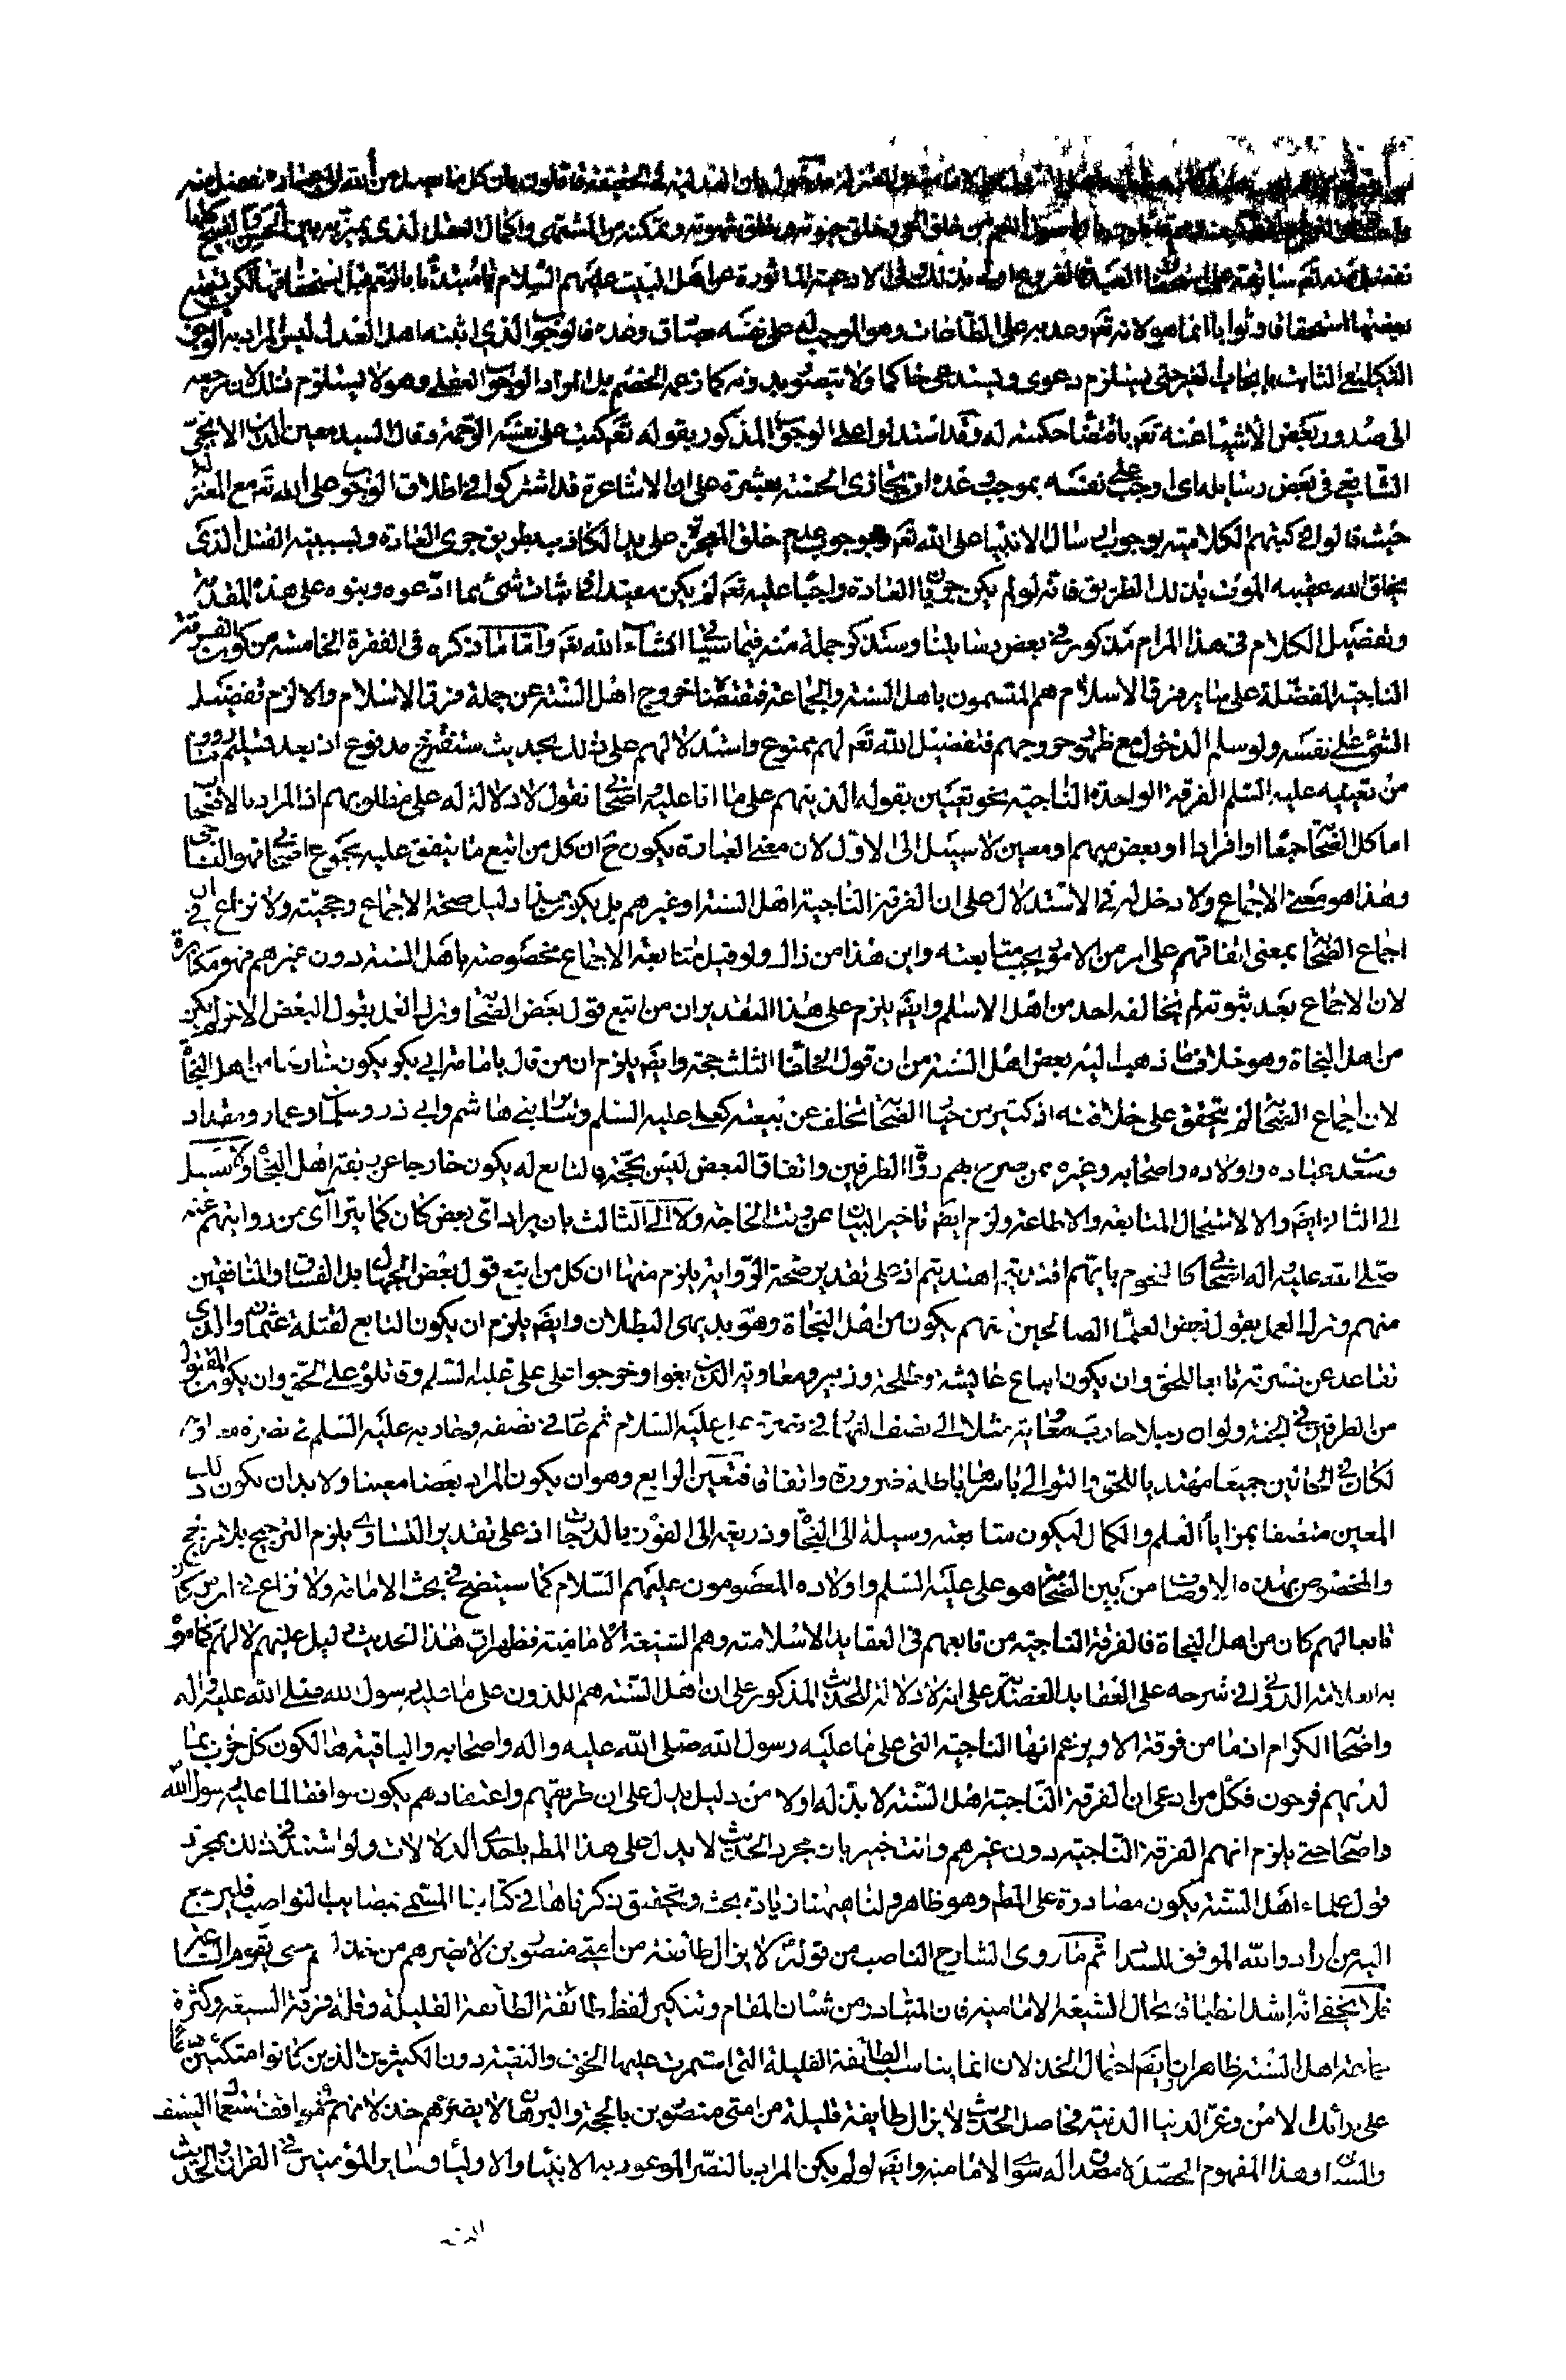 بان كل ما يصل من الله الى عباده تفضل منه
من خلق الحي وخلق حيوته وخلق شهوته وتمكنه من المشتهى واكمال العقل الذي يميز به بين الحسن والقبيح كلها
تفضل منه الادعية الماثورة عن اهل البيت عليهم السلام يا مبتدئا بالنعم قبل استحقاقها لكن تسمية
بعضها استحقاقا وثوابا انما هو لانه تعم وعد به على الطاعات وهو الموجب له على نفسه بصادق وعده فالوجوب الذي اثبته اهل العدل ليس المراد به الوجوب
التكليفي الثابت بايجاب الغير حتى يستلزم دعوى ويستدعي حاكما ولا يتصور بدونه كما زعمه الخصم بل المراد الوجوب العقلي وهو لا يستلزم ذلك لان مرجعه
الى صدور بعض الاشياء عنه تعم باقتضاء حكمته له وقد استدلوا على الوجوب المذكور بقوله تعم كتب على نفسه الرحمة وقال السيد معين الدين الايجي
الشافعي في بعض رسايله اي اوجب على نفسه بموجب وعده ان يجازى الحسنة بعشرة على ان الاشاعرة قد اشتركوا في اطلاق الوجوب على الله تعم مع المعتزلة
حيث قالوا في كتبهم الكلامية بوجوب ارسال الانبياء على الله تعم وبوجوب عدم خلق المعجزة على يد الكاذب بطريق جرى العادة وبسببية القتل الذي
يخلق الله عقيبه الموت بذلك الطريق فانه لو لم يكن جريان العادة واجبا عليه تعم لم يكن معتبرا في اثبات شيء مما ادعوه وبنوه على هذه المقدمة
وتفصيل الكلام في هذا المرام مذكور في بعض رسايلنا وسنذكر جملة منه فيما سياتي انشاء الله تعم واما ما ذكره في الفقرة الخامسة من كون الفرقة
الناجية المفضلة على ساير فرق الاسلام هم المتسمون باهل السنة والجماعة فيقتضي خروج اهل السنة عن جملة فرق الاسلام والا لزم تفضيل
الشيء على نفسه ولو سلم الدخول مع ظهور خروجهم فتفضيل الله تعم لهم ممنوع واستدلالهم على ذلك بحديث ستفترق مدفوع اذ بعد تسليم ما رووه
من تعيينه عليه السلم الفرقة الواحدة الناجية بنحو تعيين بقوله الذين هم على ما انا عليه واصحابي نقول لا دلالة له على مطلوبهم اذ المراد بالاصحاب
اما كل الصحابة جمعا او افرادا او بعض مبهم او معين لا سبيل الى الاول لان معنى العبارة يكون ح ان كل من اتبع ما يتفق عليه مجموع اصحابي فهو الناجي
وهذا هو معنى الاجماع ولا دخل له في الاستدلال على ان الفرقة الناجية اهل السنة او غيرهم بل يكون هذا دليل صحة الاجماع وحجيته ولا نزاع في ان
اجماع الصحابة بمعنى اتفاقهم على امر من الامور يجب متابعته واين هذا من ذاك ولو قيل متابعة الاجماع مخصوصة باهل السنة دون غيرهم فهو مكابرة
لان الاجماع بعد ثبوته لم يخالفه احد من اهل الاسلم وايضا يلزم على هذا التقدير ان من اتبع قول بعض الصحابة وترك العمل بقول البعض الاخر لم يكن
من اهل النجاة وهو خلاف ما ذهب اليه بعض اهل السنة من ان قول الخلفاء الثلث حجة وايضا يلزم ان من قال بامامة ابي بكر يكون خارجا من اهل النجاة
لان اجماع الصحابة لم يتحقق على خلافته اذ كثير من خيار الصحابة تخلف عن بيعته كعلى عليه السلم وسائر بني هاشم وابي ذر وسلمان وعمار ومقداد
وسعد بن عباده واولاده واصحابه وغيره ممن صرح بهم رواة الطرفين واتفاق البعض ليس بحجة والتابع له يكون خارجا عن ربقة اهل النجاة ولا سبيل
الى الثاني ايضا والا لاستحال المتابعة والاطاعة ولزم ايضا تاخير البيان عن وقت الحاجة ولا الى الثالث بان يراد اي بعض كان كما يترااى من روايتهم عنه
صلى الله عليه واله اصحابي كالنجوم بايهم اقتديتم اهتديتم اذ على تقدير صحة الرواية يلزم منها ان كل من اتبع قول بعض الجهال بل الفساق والمنافقين
منهم وترك العمل بقول بعض العلماء الصالحين منهم يكون من اهل النجاة وهو بديهي البطلان وايضا يلزم ان يكون التابع لقتلة عثمان والذي
تقاعد عن نصرته تابعا للحق وان يكون اتباع عايشة وطلحة وزبير ومعاوية الذين بغوا وخرجوا على على عليه السلم وقاتلوه على الحق وان يكون المقتول
من الطرفين في الجنة ولو ان رجلا حارب معاوية مثلا الى نصف النهار في نصرة علي عليه السلام ثم عاد في نصفه وحاربه عليه السلم في نصرة معاوية
لكان في الحالتين جميعا مهتديا بالحق والتوالي باسرها باطلة ضرورة واتفاقا فتعين الرابع وهو ان يكون المراد بعضا معينا ولا بد ان يكون ذلك
المعين متصفا بمزايا العلم والكمال ليكون متابعته وسيلة الى النجاة وذريعة الى الفوز بالدرجات اذ على تقدير التساوي يلزم الترجيح بلا مرجح
والمخصوص بهذه الاوصاف من بين الصحابة هو على عليه السلم واولاده المعصومون عليهم السلام كما سيتضح في بحث الامامة ولا نزاع في ان من كان
تابعا لهم كان من اهل النجاة فالفرقة الناجية من تابعهم في العقايد الاسلامية وهم الشيعة الامامية فظهر ان هذا الحديث دليل عليهم لا لهم كما
به العلامة الدواني في شرحه على العقايد العضدية على انه لا دلالة للحديث المذكور على ان اهل السنة هم اللذون على ما عليه رسول الله صلى الله عليه واله
واصحابه الكرام اذ ما من فرقة الا ويزعم انها الناجية التي على ما عليه رسول الله صلى الله عليه واله واصحابه والباقية هالكون كل حزب بما
لديهم فرحون فكل من ادعى ان الفرقة الناجية اهل السنة لا بد له اولا من دليل يدل على ان طريقهم واعتقادهم يكون موافقا لما عليه رسول الله
واصحابه حتى يلزم انهم الفرقة الناجية دون غيرهم وانت خبير بان مجرد الحديث لا يدل على هذا المط باحدى الدلالات ولو استند في ذلك بمجرد
قول علماء اهل السنة يكون مصادرة على المط وهو ظاهر ولنا ههنا زيادة بحث وتحقيق ذكرناها في كتابنا المسمى بمصايب النواصب فليرجع
اليه من اراد والله الموفق للسداد ثم ما روى الشارح الناصب من قوله لا يزال طائفة من امتي منصورين لا يضرهم من خذلهم حتى تقوم الساعة
فلا يخفى انه اشد انطباقا بحال الشيعة الامامية فان المتبادر من شان المقام وتنكير لفظ طائفة الطائفة القليلة وقلة فرقة الشيعة وكثرة
جماعة اهل السنة ظاهران وايضا احتمال الخذلان انما يناسب الطائفة القليلة التي استمرت عليها الخوف والتقية دون الكثيرين الذين كانوا متكئين
على ارائك الامن وعز الدنيا الدنية فحاصل الحديث لا يزال طايفة قليلة من امتي منصورين بالحجة والبرهان لا يضرهم خذلانهم
والسنان وهذا المفهوم المحصل لا مصداق له سوى الامامية وايضا لو لم يكن المراد بالنصر الموعود به الانبياء والاولياء وساير المؤمنين في القران والحديث